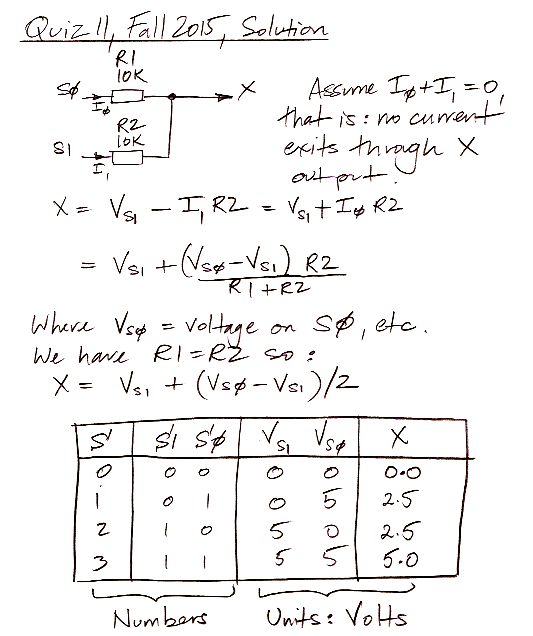 Quiz 11, Fall 2015, Solution
R1
10K
SØ IØ X
R2
10K
S1 I1
Assume IØ+I1 = 0,
that is: no current
exits through X
output.
X = VS1 - I1 R2 = VS1 + IØ R2
= VS1 + (VSØ-VS1) R2
R1+R2
Where VSØ = voltage on SØ, etc.
We have R1=R2 so:
X = VS1 + (VSØ-VS1)/2
S S1 SØ VS1 VSØ X
0 0 0 0 0 0.0
1 0 1 0 5 2.5
2 1 0 5 0 2.5
3 1 1 5 5 5.0
Numbers Units: Volts